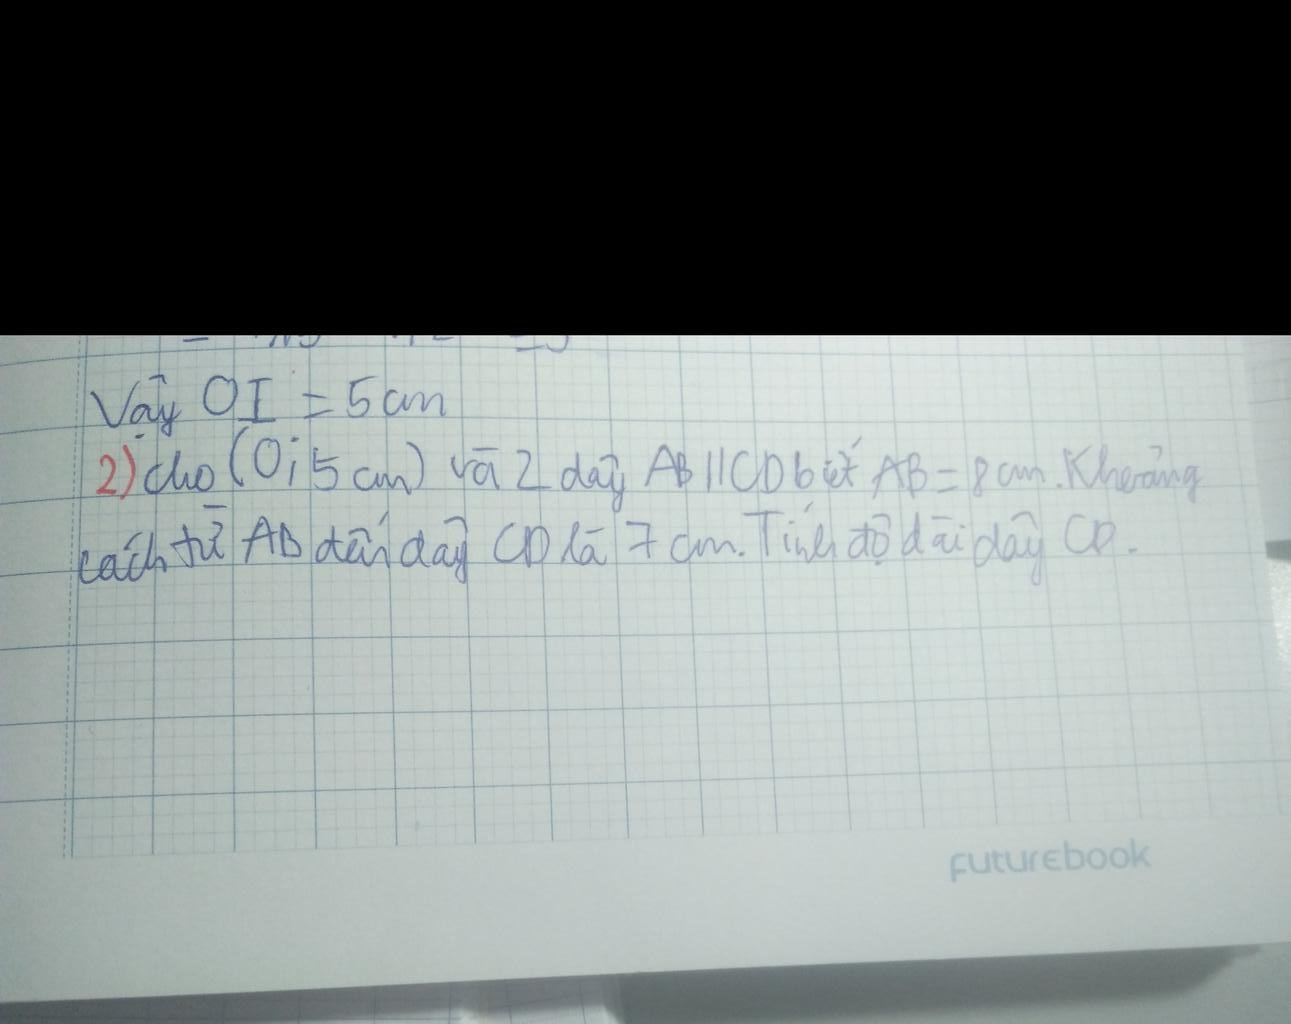 Vậy OI = 5 cm
2) cho (O; 5 cm) và 2 dây AB // CD biết AB = 8 cm. Khoảng
cách từ AB đến dây CD là 7 cm. Tính độ dài dây CD.
futurebook